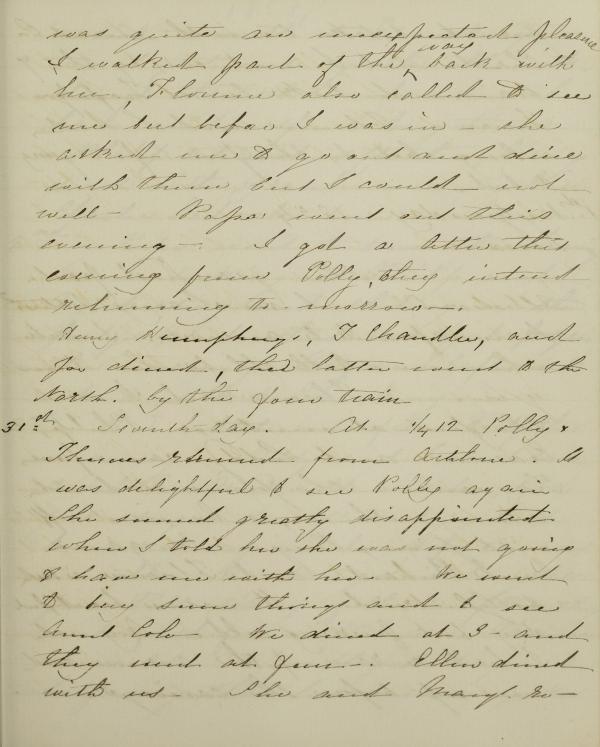 was quite an unexpected pleasure
I walked part of the way back with
her, Florence also called to see
me but before I was in - she
asked me to go out and dine
with them but I could not
well - Papa went out this
evening - I got a letter this
evening from Polly, they intend
returning to-morrow -.
Humphreys, T Chandlee, and
Joe dined, the latter went to the
North. by the four train
31st Seventh day. At 1/4 12 Polly &
Thomas returned from Athlone. It
was delightful to see Polly again
She seemed greatly disappointed
when I told her she was not going
to have me with her. We went
to buy some things and to see
Aunt We dined at 3 - and
they went at four -. Ellen dined
with us - She and Mary